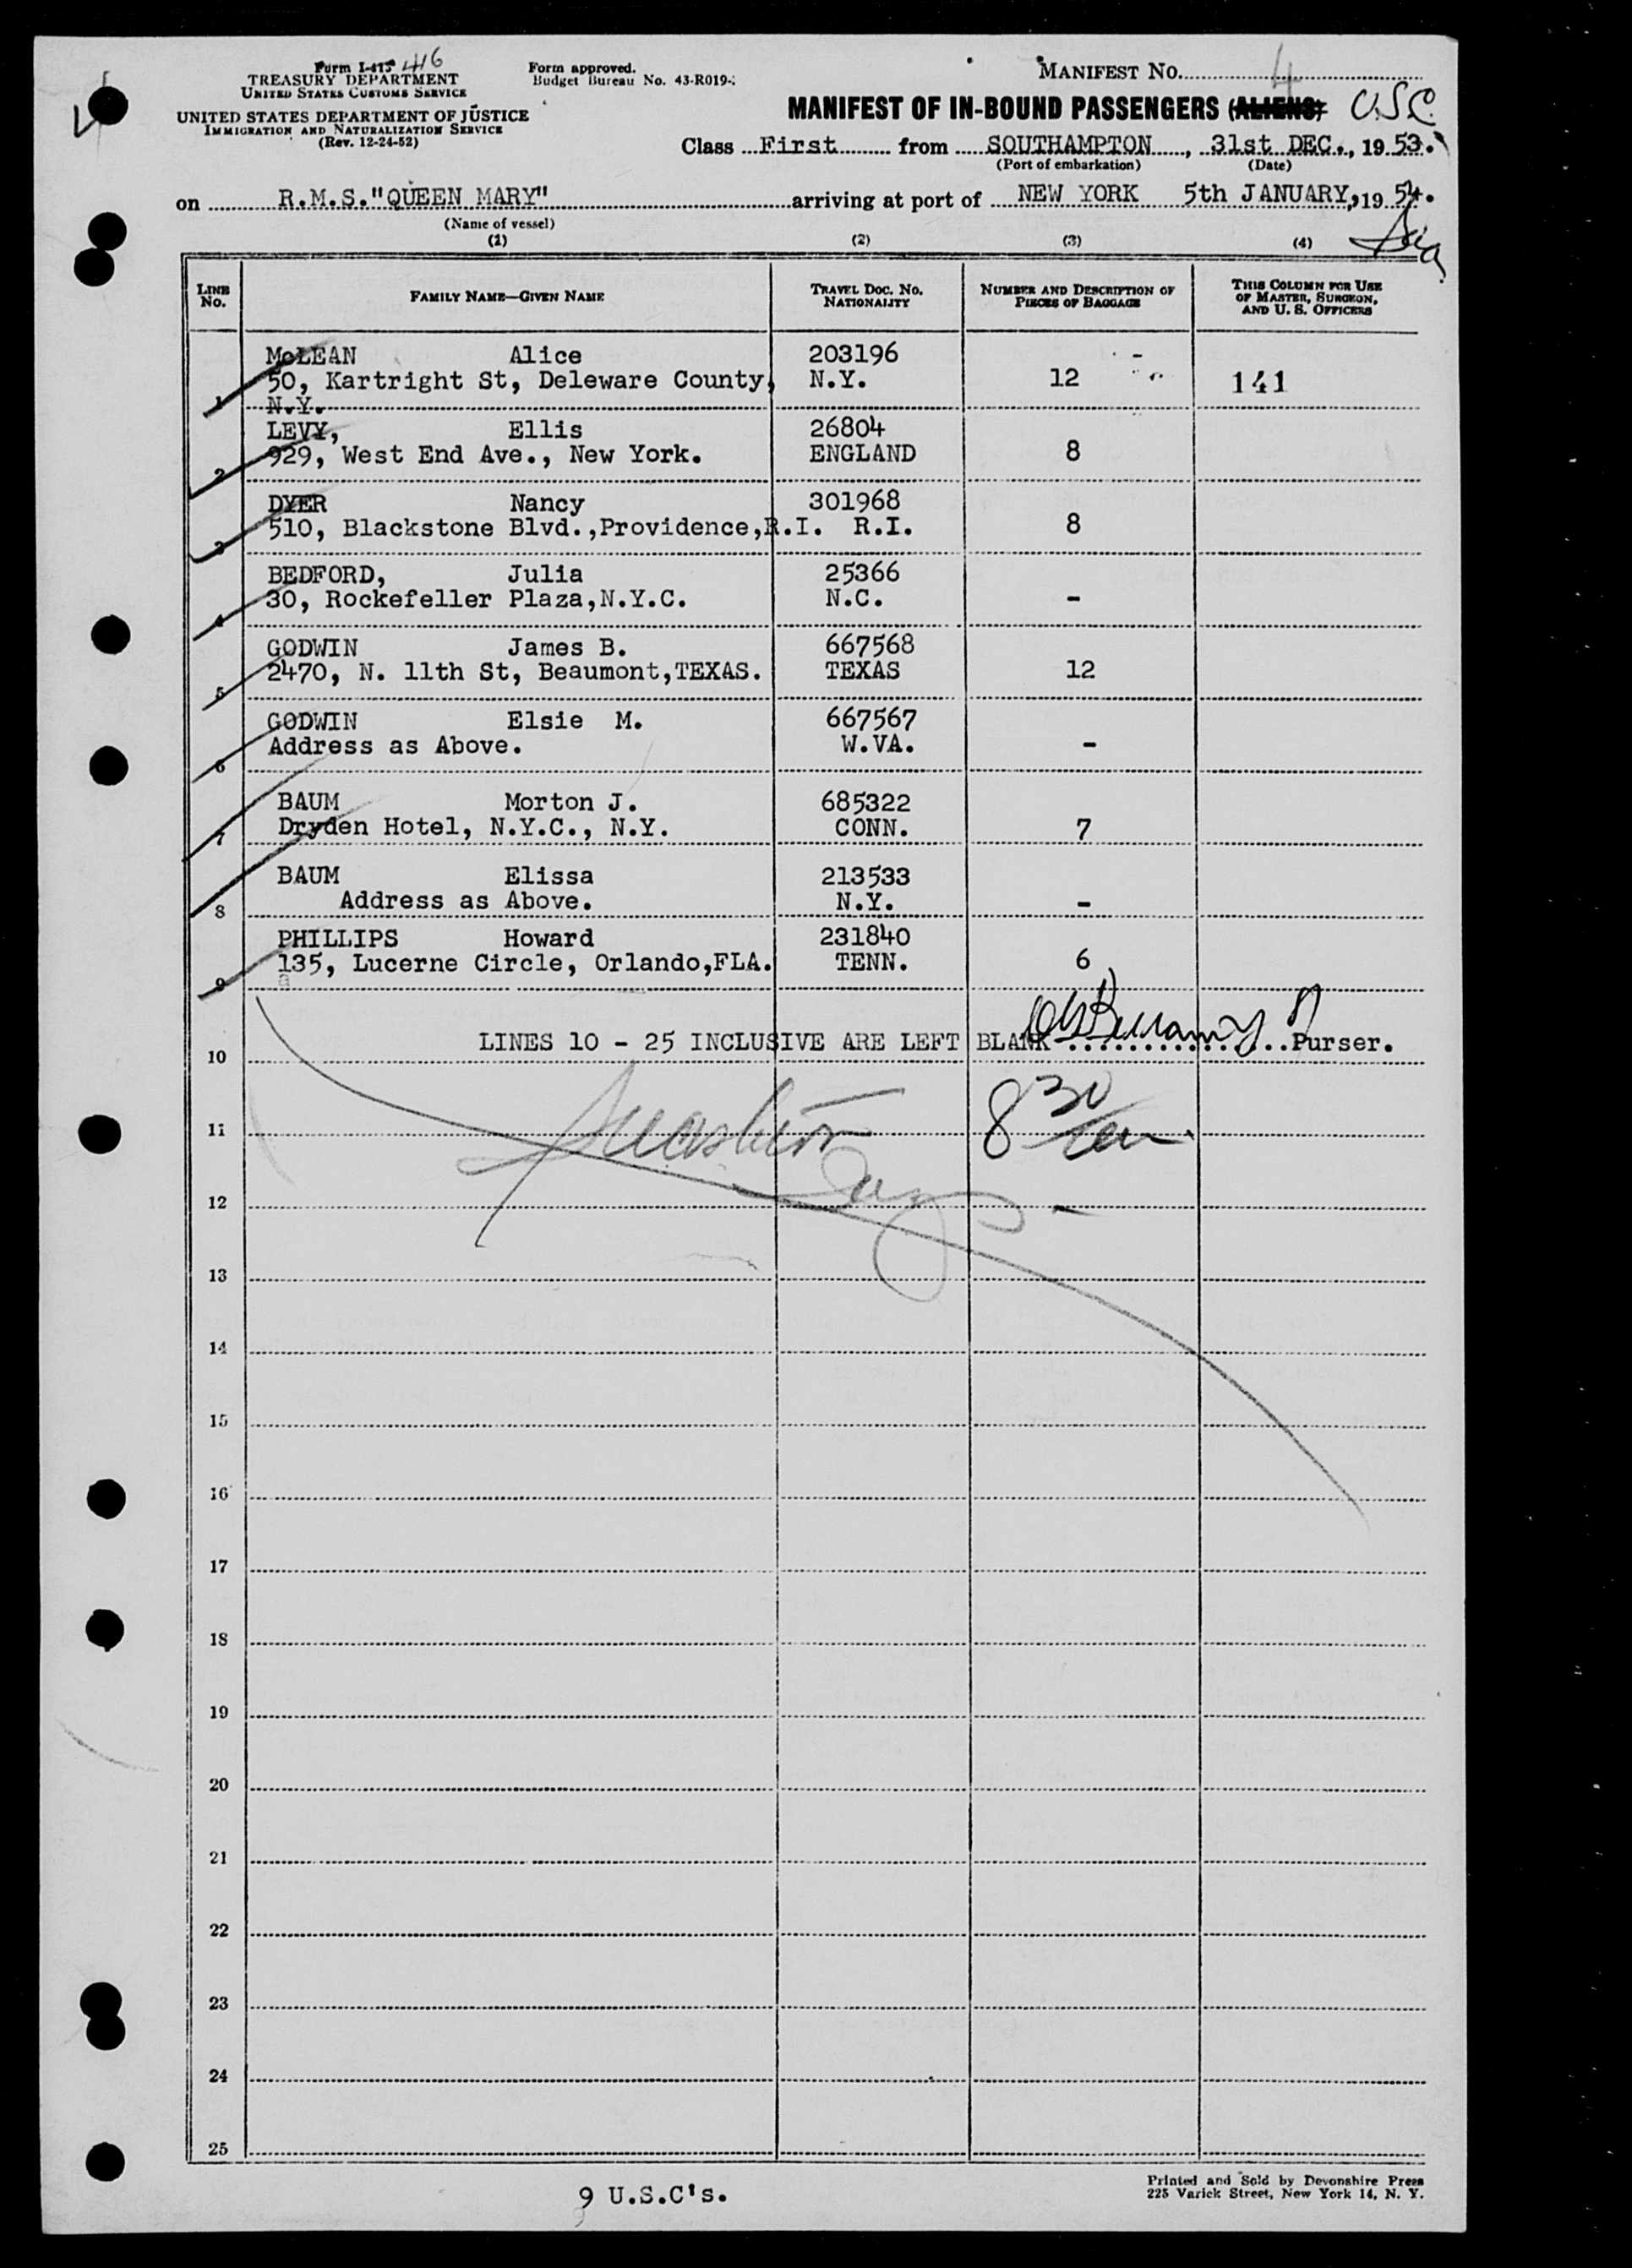 Form I-415 416
TREASURY DEPARTMENT
UNITED STATES CUSTOMS SERVICE
UNITED STATES DEPARTMENT OF JUSTICE
IMMIGRATION AND NATURALIZATION SERVICE
(Rev. 12-24-52)
Form approved.
Budget Bureau No. 43-R019-
MANIFEST NO. 4
MANIFEST OF IN-BOUND PASSENGERS (ALIENS) USC.
Class First from SOUTHAMPTON, 31st DEC., 1953.
(Port of embarkation) (Date)
on R.M.S."QUEEN MARY" arriving at port of NEW YORK 5th JANUARY,1954.
(Name of vessel)
(1) (2) (3) (4)
LINE No. FAMILY NAME—GIVEN NAME TRAVEL DOC. NO. NATIONALITY NUMBER AND DESCRIPTION OF PIECES OF BAGGAGE THIS COLUMN FOR USE OF MASTER, SURGEON, AND U. S. OFFICERS
McLEAN Alice 203196 -
1 50, Kartright St, Deleware County, N.Y. 12 141
N.Y.
LEVY, Ellis 26804
2 929, West End Ave., New York. ENGLAND 8
DYER Nancy 301968
3 510, Blackstone Blvd.,Providence,R.I. R.I. 8
BEDFORD, Julia 25366
4 30, Rockefeller Plaza,N.Y.C. N.C. -
GODWIN James B. 667568
5 2470, N. 11th St, Beaumont,TEXAS. TEXAS 12
GODWIN Elsie M. 667567
6 Address as Above. W.VA. -
BAUM Morton J. 685322
7 Dryden Hotel, N.Y.C., N.Y. CONN. 7
BAUM Elissa 213533
8 Address as Above. N.Y. -
PHILLIPS Howard 231840
9 135, Lucerne Circle, Orlando,FLA. TENN. 6
10 LINES 10 - 25 INCLUSIVE ARE LEFT BLANK ..............Purser.
11 8 30
12
13
14
15
16
17
18
19
20
21
22
23
24
25
9 U.S.C's.
Printed and Sold by Devonshire Press
225 Varick Street, New York 14, N. Y.